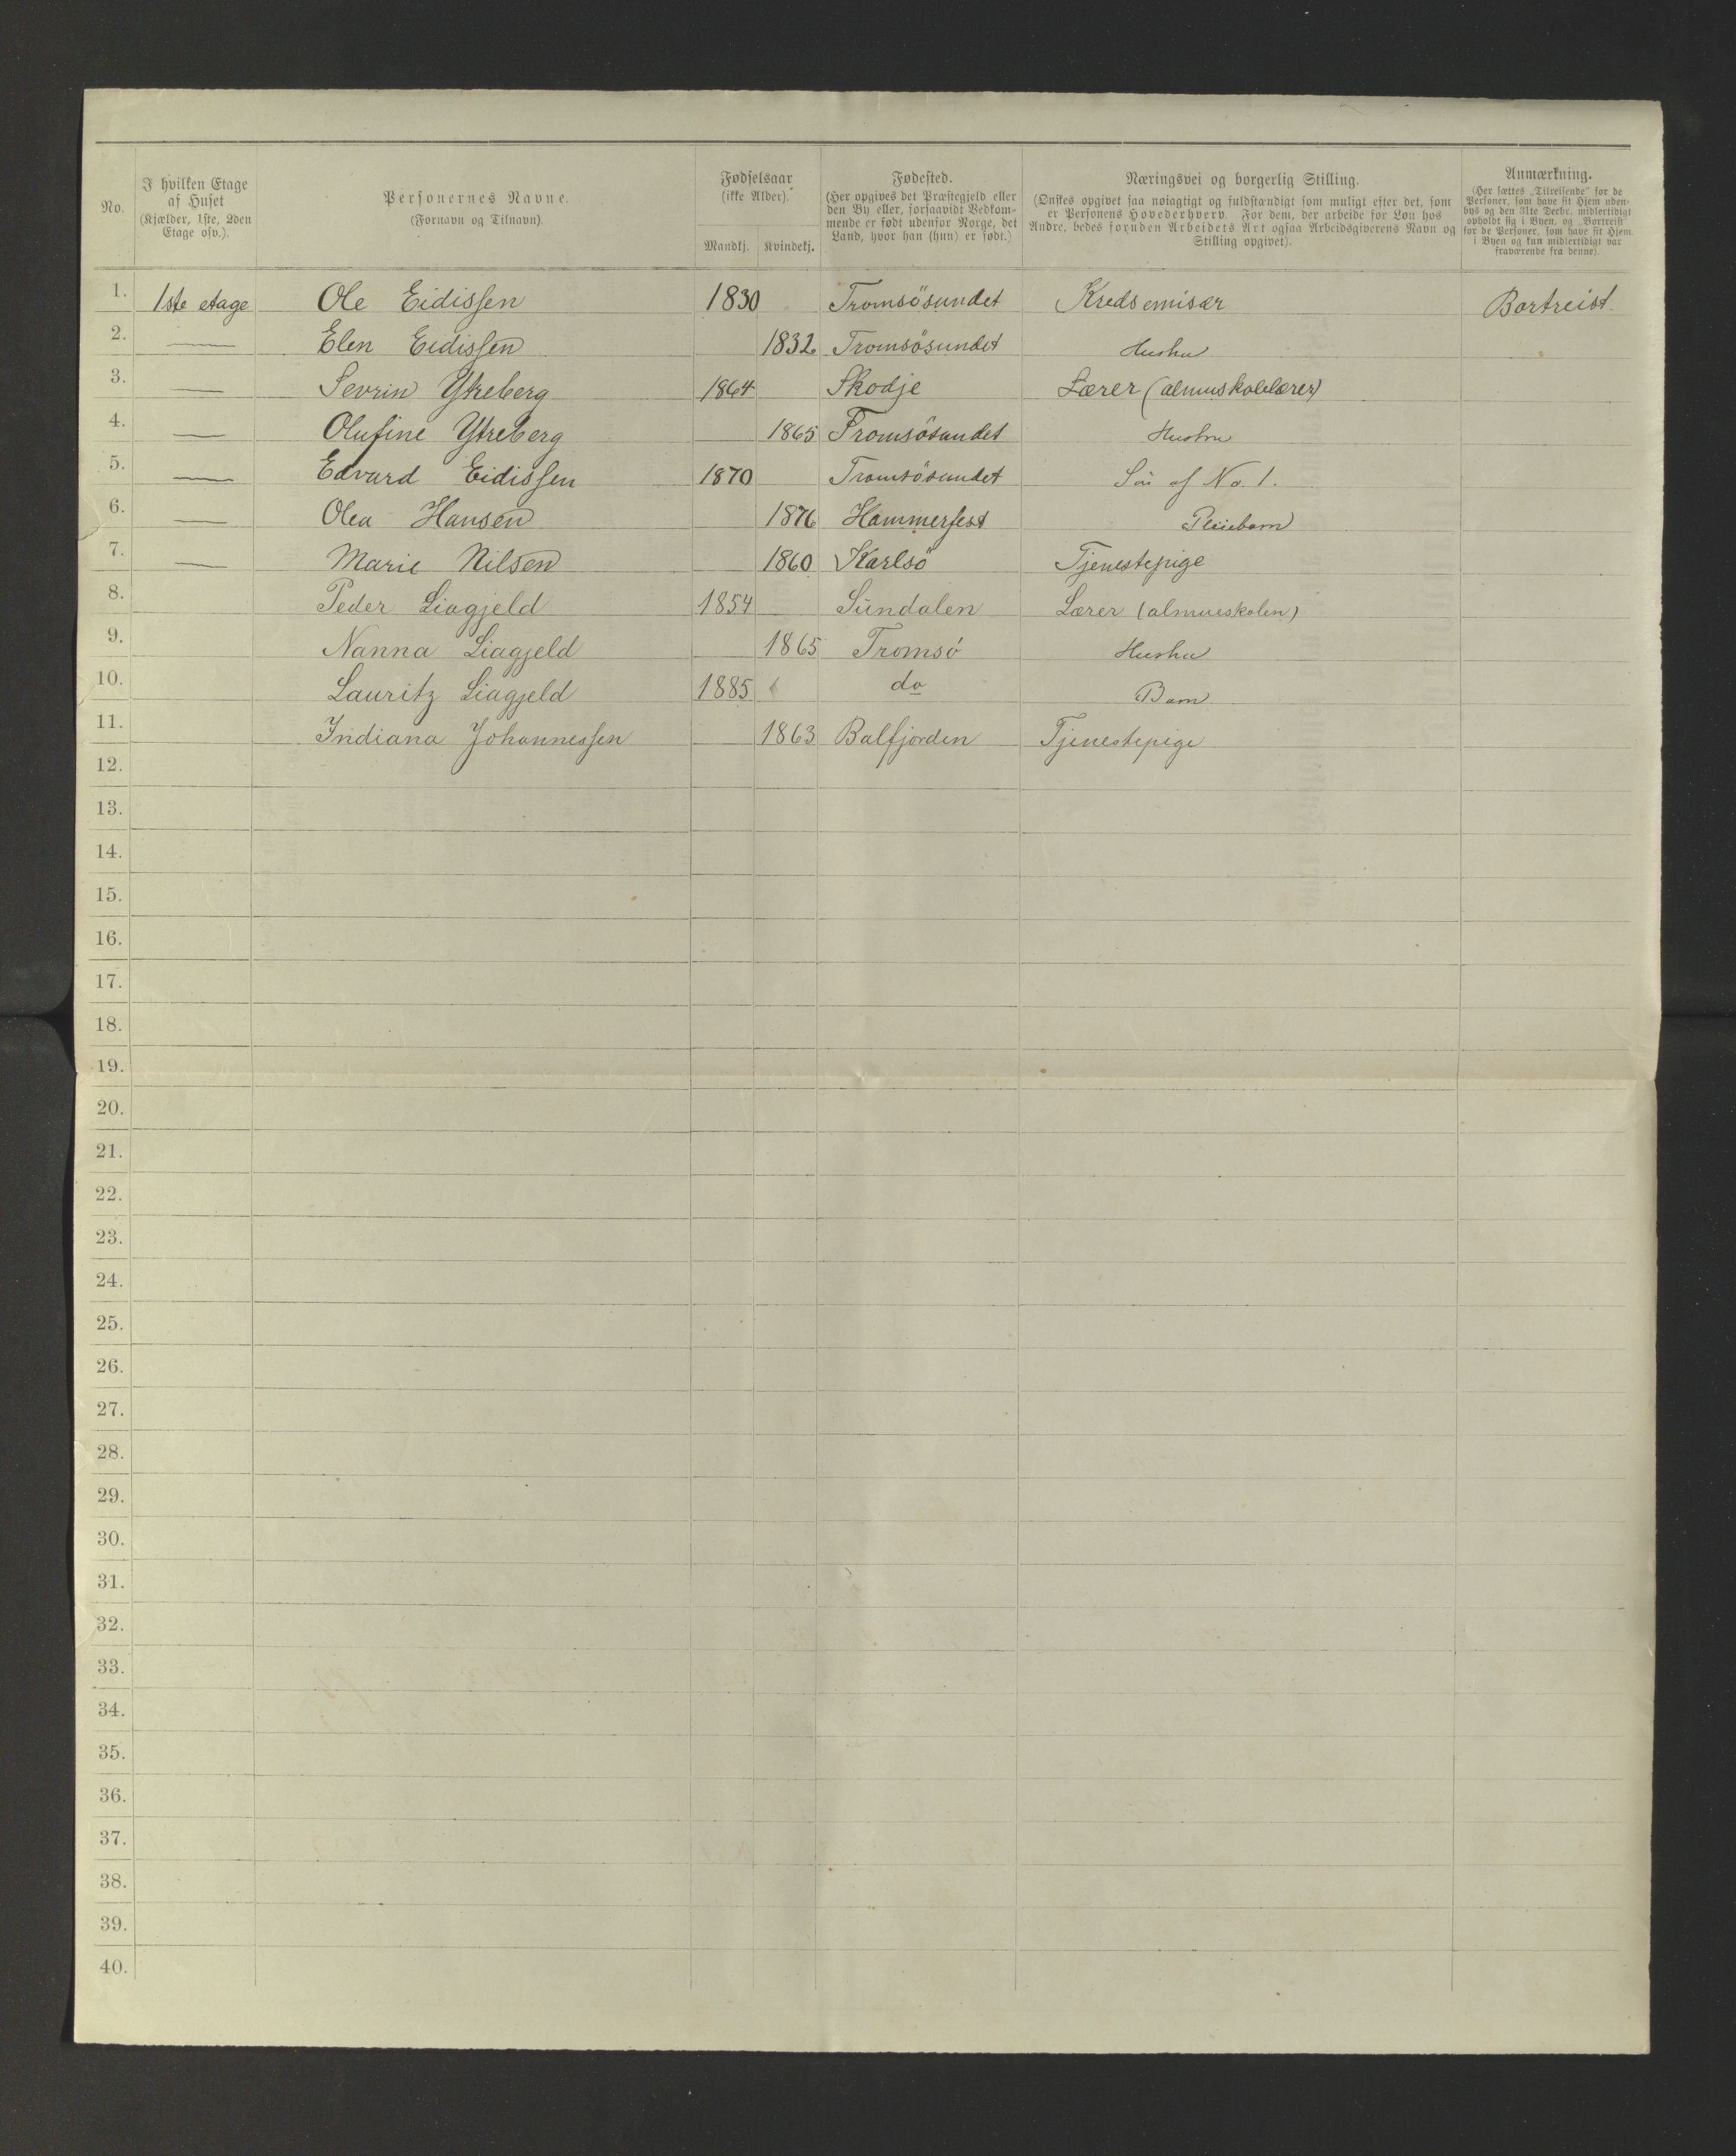 No.
I hvilken Etage
af Huset
(Kjælder, 1ste, 2den
Etage osv.).
Personernes Navne.
(Fornavn og Tilnavn).
Fødselsaar
(ikke Alder).
Mandkj. Kvindekj.
Fødested.
(Her opgives det Præstegjeld eller
den By eller, forsaavidt Vedkom-
mende er født udenfor Norge, det
Land, hvor han (hun) er født.)
Næringsvei og borgerlig Stilling.
(Ønskes opgivet saa nøiagtigt og fuldstændigt som muligt efter det, som
er Personens Hovederhverv. For dem, der arbeide for Løn hos
Andre, bedes foruden Arbeidets Art ogsaa Arbeidsgiverens Navn og
Stilling opgivet).
Anmærkning.
(Her sættes „Tilreisende" for de
Personer, som have sit Hjem uden-
bys og den 31te Decbr. midlertidigt
opholdt sig i Byen, og „Bortreist"
for de Personer, som have sit Hjem
i Byen og kun midlertidigt var
fraværende fra denne).
1. 1ste etage Ole Eidissen 1830 Tromsösundet Kredsemisær Bortreist.
2. — Elen Eidissen 1832 Tromsösundet Hustru
3. — Sevrin Ytreberg 1864 Skodje Lærer (almuskolelærer)
4. — Olufine Ytreberg 1865 Tromsösundet Hustru
5. — Edvard Eidissen 1870 Tromsösundet Sön af No. 1.
6. — Olea Hansen 1876 Hammerfest Pleiebarn
7. — Marie Nilsen 1860 Karlsö Tjenestepige
8. Peder Liagjeld 1854 Sundalen Lærer (almueskolen)
9. Nanna Liagjeld 1865 Tromsö Hustru
10. Lauritz Liagjeld 1885 do Barn
11. Indiana Johannessen 1863 Balsfjorden Tjenestepige
12.
13.
14.
15.
16.
17.
18.
19.
20.
21.
22.
23.
24.
25.
26.
27.
28.
29.
30.
31.
32.
33.
34.
35.
36.
37.
38.
39.
40.